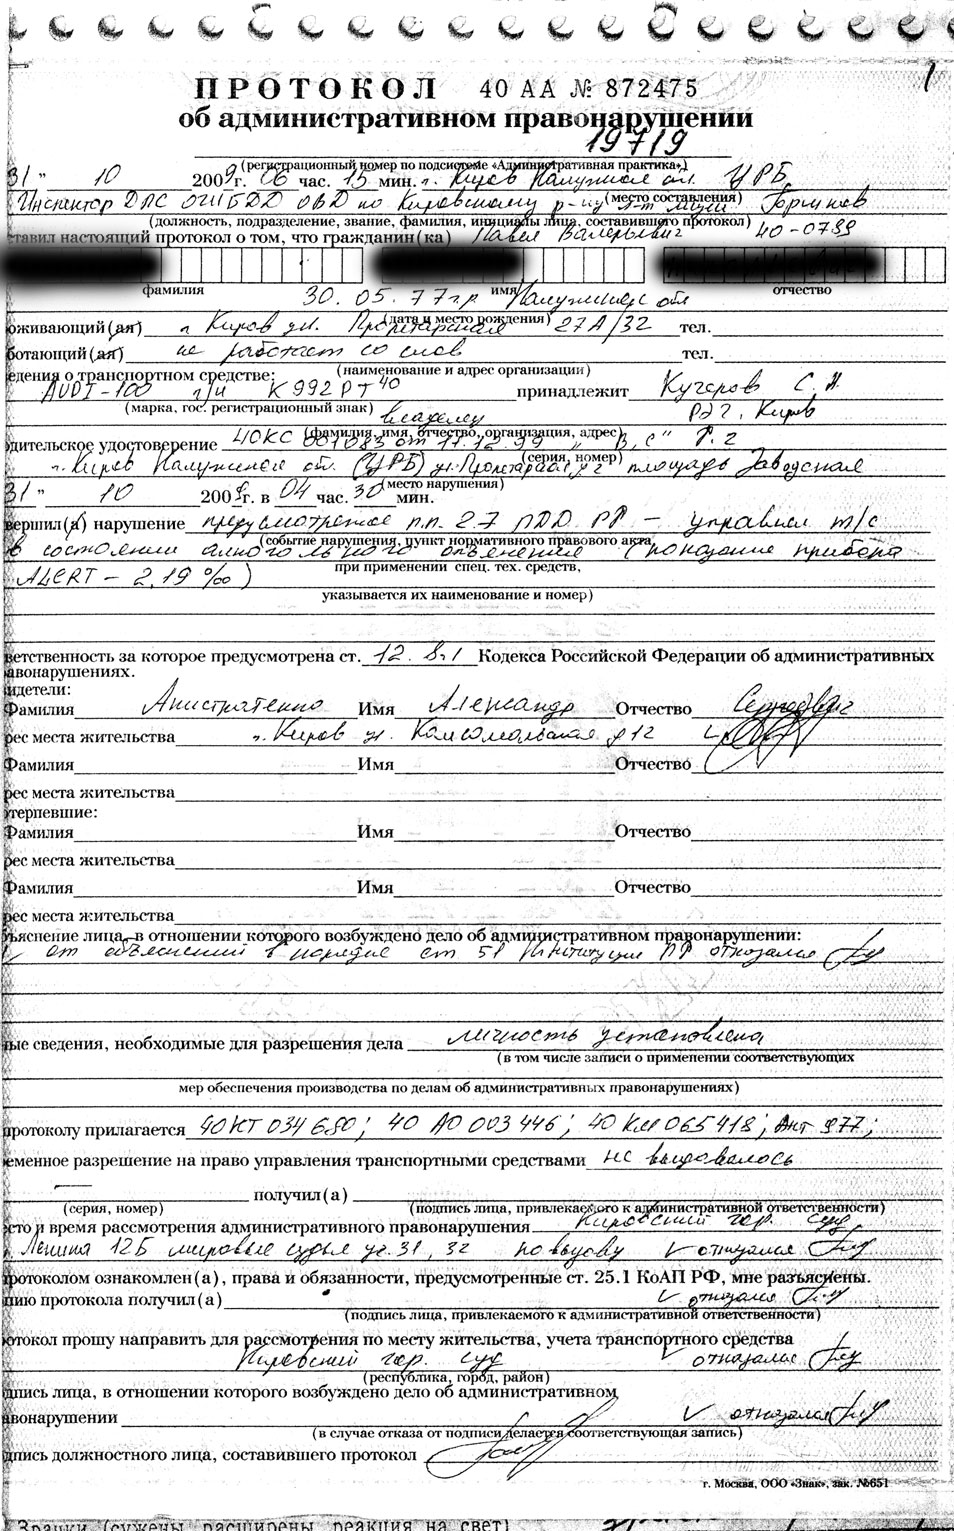 1
ПРОТОКОЛ 40 АА № 872475
об административном правонарушении
19719
(регистрационный номер по подсистеме «Административная практика»)
31 " 10 2009г. 06 час. 15 мин. г. Киров Калужской обл. ЦРБ
(место составления)
Инспектор ДПС ОГИБДД ОВД по Кировскому р-ну л-т мил.
(должность, подразделение, звание, фамилия, инициалы лица, составившего протокол)
ставил настоящий протокол о том, что гражданин(ка) Павел Валерьевич 40-0799
фамилия имя отчество
30.05.77 г.р Калужская обл
(дата и место рождения)
оживающий(ая) г. Киров ул. Пролетарская 27А/32 тел.
ботающий(ая) не работает со слов тел.
(наименование и адрес организации)
едения о транспортном средстве:
AUDI-100 г/н К 992 РТ 40 принадлежит Кучеров С. Н.
(марка, гос. регистрационный знак) РЭГ, Киров
владелец
(фамилия, имя, отчество, организация, адрес)
дительское удостоверение 40КС 001083 от 11.12.99 „В, С"
(серия, номер)
г. Киров Калужской обл. (ЦРБ) ул. Пролетарская площадь Заводская
(место нарушения)
31 " 10 2009г. в 04 час. 30 мин.
вершил(а) нарушение предусмотренное п.п. 2.7 ПДД РФ – управлял т/с
(событие нарушения, пункт нормативного правового акта,
в состоянии алкогольного опьянения (показание прибора
при применении спец. тех. средств,
ALERT – 2,19 ‰)
указывается их наименование и номер)
ветственность за которое предусмотрена ст. 12.8.1 Кодекса Российской Федерации об административных
авонарушениях.
идетели:
Фамилия Анистратенко Имя Александр Отчество Сергеевич
рес места жительства г. Киров ул. Комсомольская д 12
Фамилия Имя Отчество
рес места жительства
терпевшие:
Фамилия Имя Отчество
рес места жительства
Фамилия Имя Отчество
рес места жительства
ъяснение лица, в отношении которого возбуждено дело об административном правонарушении:
от объяснений в порядке ст 51 Конституции РФ отказался
ые сведения, необходимые для разрешения дела личность установлена
(в том числе записи о применении соответствующих
мер обеспечения производства по делам об административных правонарушениях)
протоколу прилагается 40 КТ 034680; 40 АО 003446; 40 КМ 065418; Акт 977;
еменное разрешение на право управления транспортными средствами не выдавалось
получил(а)
(серия, номер) (подпись лица, привлекаемого к административной ответственности)
сто и время рассмотрения административного правонарушения Кировский гор. суд
Ленина 12Б мировые судьи уч. 31, 32 по вызову V отказался
ротоколом ознакомлен(а), права и обязанности, предусмотренные ст. 25.1 КоАП РФ, мне разъяснены.
пию протокола получил(а) V отказался
(подпись лица, привлекаемого к административной ответственности)
отокол прошу направить для рассмотрения по месту жительства, учета транспортного средства
Кировский гор. суд V отказался
(республика, город, район)
дпись лица, в отношении которого возбуждено дело об административном
авонарушении V отказался
(в случае отказа от подписи делается соответствующая запись)
дпись должностного лица, составившего протокол
г. Москва, ООО «Знак», зак. №651
Зрачки (сужены, расширены, реакция на свет)